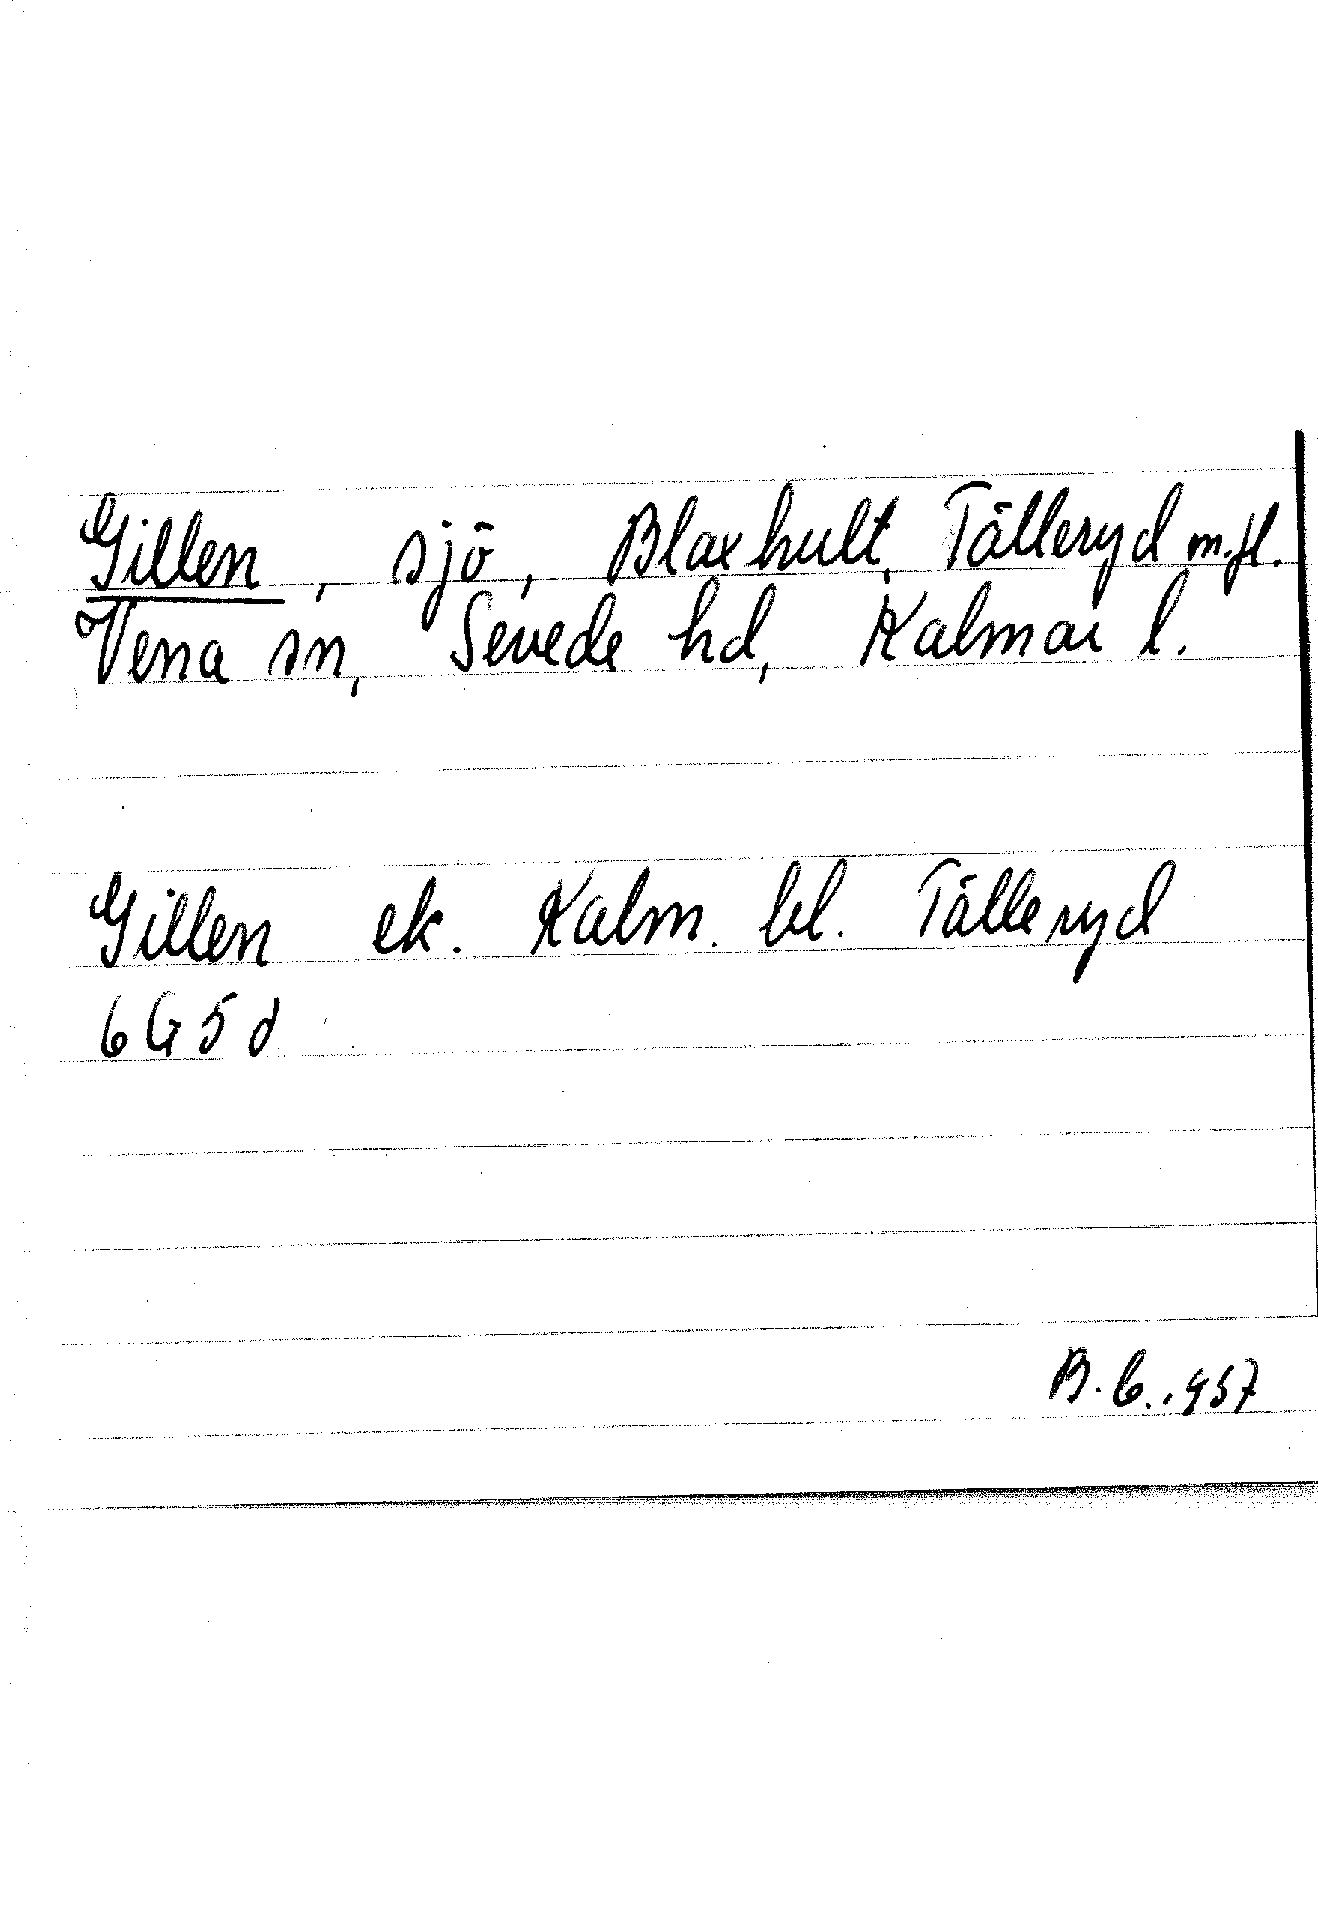 Gillen, sjö, Blaxhult, Tålleryd m.fl.
Vena sn, Sevede hd, Kalmar l.
Gillen ek. Kalm. bl. Tålleryd
6 G 5 d
B.